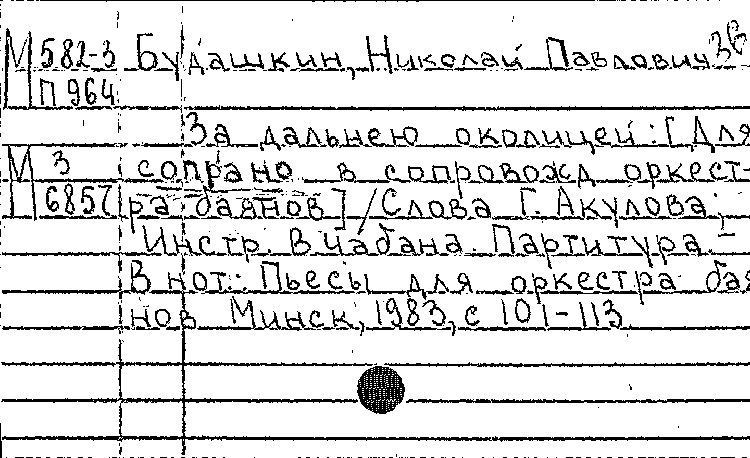 М 582-3 Будашкин, Николай Павлович
П 964
За дальнею околицей: [Для
М 3 сопрано в сопровожд оркест-
6857 ра баянов] / Слова Г. Акулова;
Инстр. В Чабана. Партитура. –
В нот.: Пьесы для оркестра бая
нов Минск, 1983, с 101-113